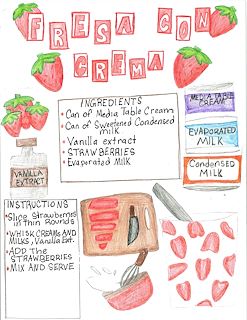 FRESA CON
CREMA
INGREDIENTS
• Can of Media Table Cream
• Can of Sweetened Condensed
milk
• Vanilla extract
• STRAWBERRIES
• Evaporated Milk
MEDIA TABLE
CREAM
EVAPORATED
MILK
CONDENSED
MILK
VANILLA
EXTRACT
INSTRUCTIONS
• Slice Strawberries
in Thin Rounds
• WHISK CREAMS AND
MILKS, Vanilla Ext.
• ADD THE
STRAWBERRIES
• MIX AND SERVE